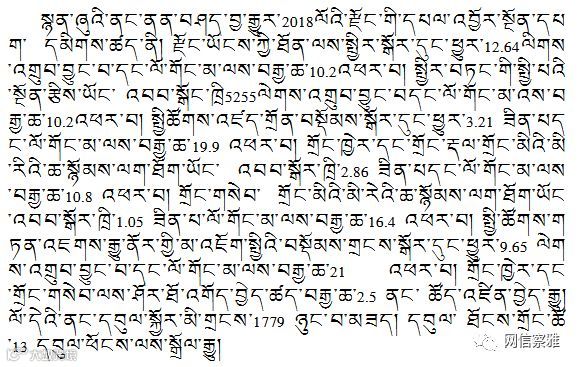 སྙན་ཞུའི་ནང་ནན་བཤད་བྱ་རྒྱུར་2018ལོའི་རྫོང་གི་དཔལ་འབྱོར་སྔོན་དཔ
ག་ དམིགས་ཚད་ནི། རྫོང་ཡོངས་ཀྱི་ཐོན་ལས་སྤྱིར་སྒོར་དུང་ཕྱུར་12.64ལེགས
་འགྲུབ་བྱུང་བ་དང་ལོ་གོང་མ་ལས་བརྒྱ་ཆ་10.2འཕར་བ། སྤྱིར་བཏང་གི་སྤྱི་པའི
་སྔོན་རྩིས་ཡོང་ འབབ་སྒོང་ཁྲི5255ལེགས་འགྲུབ་བྱུང་བདང་ལོ་གོང་མ་འས་བ
རྒྱ་ཆ་10.2འཕར་བ། སྤྱི་ཚོགས་འཛད་གྲོན་བསྡོམས་སྒོར་དུང་ཕྱུར་3.21 ཟིན་པད
ང་ལོ་གོང་མ་ལས་བརྒྱ་ཆ་19.9 འཕར་བ། གྲོང་ཁྱེར་དང་གྲོང་རྡལ་གྲོང་མིའི་མི
་རེའི་ཆ་སྙོམས་ལག་ཐོག་ཡོང་ འབབ་སྒོར་ཁྲི་2.86 ཟིན་པདང་ལོ་གོང་མ་ལས
་བརྒྱ་ཆ་10.8 འཕར་བ། གྲོང་གསེབ་ གྲོང་མིའི་མི་རེའི་ཆ་སྙོམས་ལག་ཐོག་ཡོང
་འབབ་སྒོར་ཁྲི་1.05 ཟིན་པ་ལོ་གོང་མ་ལས་བརྒྱ་ཆ་16.4 འཕར་བ། སྤྱི་ཚོགས་ག
ཏན་འཇགས་རྒྱུ་ནོར་གྱི་མ་འཇོག་སྤྱིའི་བསྡོམས་གྲངས་སྒོར་དུང་ཕྱུར་9.65 ལེག
ས་འགྲུབ་བྱུང་བ་དང་ལོ་གོང་མ་ལས་བརྒྱ་ཆ་21 འཕར་བ། གྲོང་ཁྱེར་དང
་གྲོང་གསེབ་ལས་ཤོར་ཐོ་འགོད་བྱེད་ཚད་བརྒྱ་ཆ་2.5 ནང་ ཚོད་འཛིན་བྱེད་རྒྱུ།
ལོ་དེའི་ནང་དབུལ་སྐྱོར་མི་གྲངས་1779 ཉུང་བ་མཟད། དབུལ་ ཐོངས་གྲོང་ཚོ
་13 དབུལ་ཕོངས་ལས་སྒྲོལ་རྒྱུ།
网信察雅